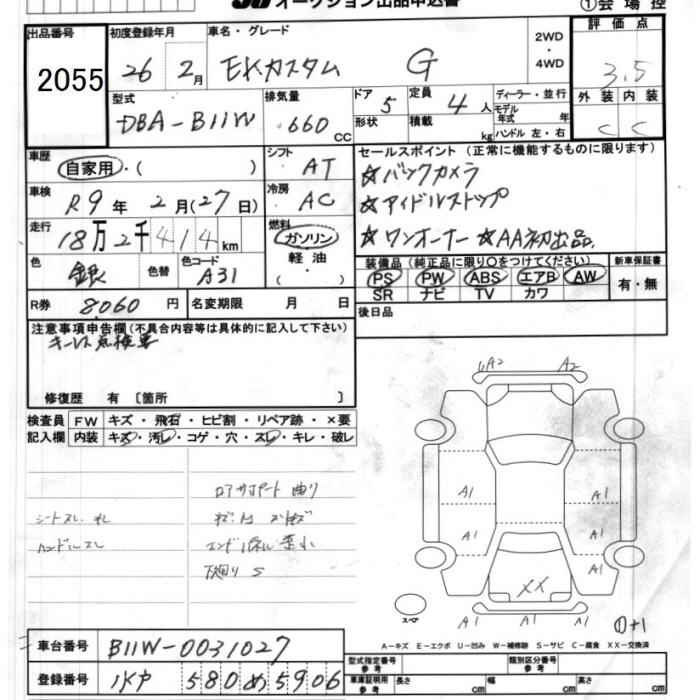 オークション出品申込書
①会場控
出品番号
2055
初度登録年月
26 2月
車名・グレード
EKカスタム G
2WD・4WD
評価点
3.5
外装 内装
C C
型式
DBA-B11W
排気量
660 CC
ドア 5
形状
定員 4 人
積載 kg
ディーラー・並行
モデル年式 年
ハンドル 左・右
車歴
自家用・( )
シフト
AT
車検
R9年 2月(27日)
冷房
AC
走行
18万2千414km
燃料
ガソリン
軽油
( )
色
銀
色替
色コード
A31
セールスポイント(正常に機能するものに限ります)
☆バックカメラ
☆アイドルストップ
☆ワンオーナー ☆AA初出品
装備品(純正品に限り〇をつけてください)
PS PW ABS エアB AW
SR ナビ TV カワ
新車保証書
有・無
R券 8060円
名変期限 月 日
後日品
注意事項申告欄(不具合内容等は具体的に記入して下さい)
キーレス点検要
修復歴 有〔箇所 〕
検査員記入欄
FW キズ・飛石・ヒビ割・リペア跡・×要
内装 キズ・汚レ・コゲ・穴・スレ・キレ・破レ
コアサポート 曲り
シートスレ
ハンドルスレ
エンドパネル 歪小
下廻り S
A2 A2
A1 A1
A1 A1
A1 A1
XX
A1 A1
スペア
A-キズ E-エクボ U-凹み W-補修跡 S-サビ C-腐食 XX-交換済
車台番号
B11W-0031027
登録番号
水戸 580 め 5906
型式指定番号 参考
類別区分番号 参考
車庫証明用 参考
長さ cm 幅 cm 高さ cm